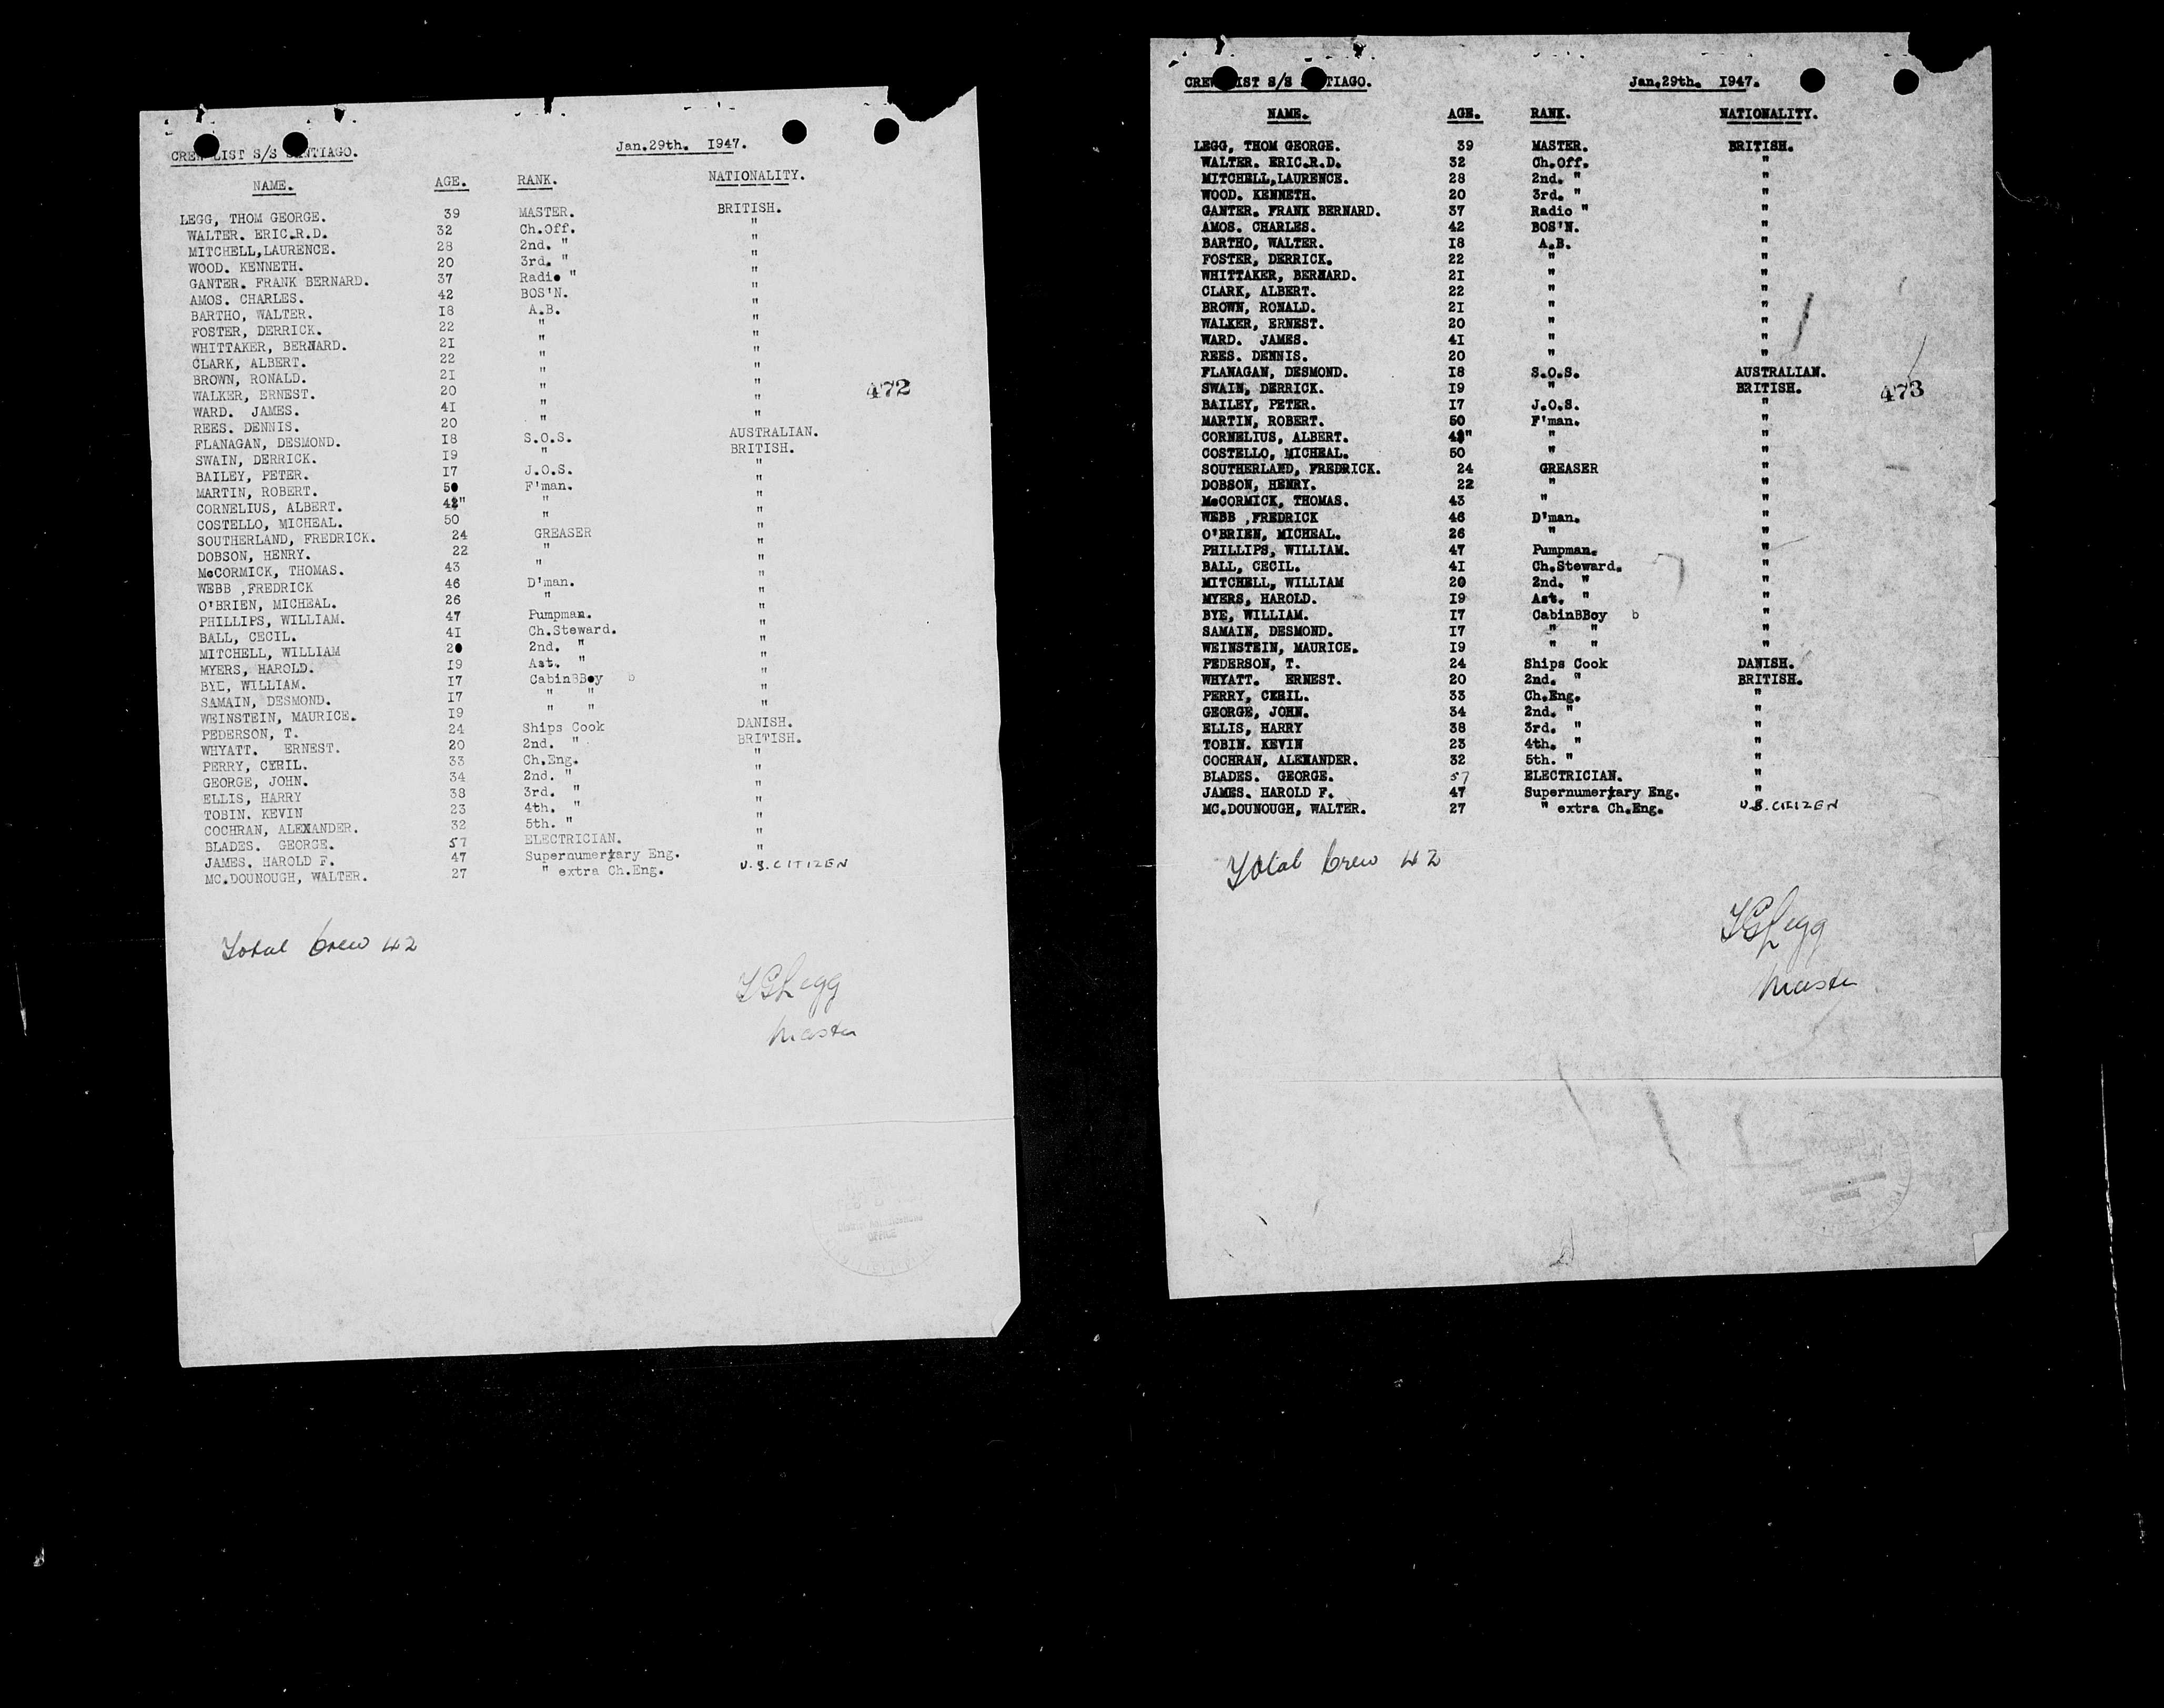 CREW LIST S/S SANTIAGO. Jan.29th. 1947.
NAME. AGE. RANK. NATIONALITY.
LEGG, THOM GEORGE. 39 MASTER. BRITISH.
WALTER. ERIC.R.D. 32 Ch.Off. "
MITCHELL,LAURENCE. 28 2nd. " "
WOOD. KENNETH. 20 3rd. " "
GANTER. FRANK BERNARD. 37 Radio " "
AMOS. CHARLES. 42 BOS'N. "
BARTHO, WALTER. I8 A.B. "
FOSTER, DERRICK. 22 " "
WHITTAKER, BERNARD. 2I " "
CLARK, ALBERT. 22 " "
BROWN, RONALD. 2I " "
WALKER, ERNEST. 20 " " 472
WARD. JAMES. 4I " "
REES. DENNIS. 20 " "
FLANAGAN, DESMOND. I8 S.O.S. AUSTRALIAN.
SWAIN, DERRICK. I9 " BRITISH.
BAILEY, PETER. I7 J.O.S. "
MARTIN, ROBERT. 50 F'man. "
CORNELIUS, ALBERT. " "
COSTELLO, MICHEAL. 50 " "
SOUTHERLAND, FREDRICK. 24 GREASER "
DOBSON, HENRY. 22 " "
McCORMICK, THOMAS. 43 " "
WEBB ,FREDRICK 46 D'man. "
O'BRIEN, MICHEAL. 26 " "
PHILLIPS, WILLIAM. 47 Pumpman. "
BALL, CECIL. 4I Ch.Steward. "
MITCHELL, WILLIAM 20 2nd. " "
MYERS, HAROLD. I9 Ast. " "
BYE, WILLIAM. I7 CabinBBoy b "
SAMAIN, DESMOND. I7 " " "
WEINSTEIN, MAURICE. I9 " " "
PEDERSON, T. 24 Ships Cook DANISH.
WHYATT. ERNEST. 20 2nd. " BRITISH.
PERRY, CERIL. 33 Ch.Eng. "
GEORGE, JOHN. 34 2nd. " "
ELLIS, HARRY 38 3rd. " "
TOBIN. KEVIN 23 4th. " "
COCHRAN, ALEXANDER. 32 5th. " "
BLADES. GEORGE. 57 ELECTRICIAN. "
JAMES. HAROLD F. 47 Supernumerary Eng. "
MC.DOUNOUGH, WALTER. 27 " extra Ch.Eng. U.S. CITIZEN
Total Crew 42
TGLegg
Master
OFFICE
CREW LIST S/S SANTIAGO. Jan.29th. I947.
NAME. AGE. RANK. NATIONALITY.
LEGG, THOM GEORGE. 39 MASTER. BRITISH.
WALTER. ERIC.R.D. 32 Ch.Off. "
MITCHELL,LAURENCE. 28 2nd. " "
WOOD. KENNETH. 20 3rd. " "
GANTER. FRANK BERNARD. 37 Radio " "
AMOS. CHARLES. 42 BOS'N. "
BARTHO, WALTER. I8 A.B. "
FOSTER, DERRICK. 22 " "
WHITTAKER, BERNARD. 2I " "
CLARK, ALBERT. 22 " "
BROWN, RONALD. 2I " "
WALKER, ERNEST. 20 " "
WARD. JAMES. 4I " "
REES. DENNIS. 20 " "
FLANAGAN, DESMOND. I8 S.O.S. AUSTRALIAN.
SWAIN, DERRICK. I9 " BRITISH. 473
BAILEY, PETER. I7 J.O.S. "
MARTIN, ROBERT. 50 F'man. "
CORNELIUS, ALBERT. " "
COSTELLO, MICHEAL. 50 " "
SOUTHERLAND, FREDRICK. 24 GREASER "
DOBSON, HENRY. 22 " "
McCORMICK, THOMAS. 43 " "
WEBB ,FREDRICK 46 D'man. "
O'BRIEN, MICHEAL. 26 " "
PHILLIPS, WILLIAM. 47 Pumpman. "
BALL, CECIL. 4I Ch.Steward. "
MITCHELL, WILLIAM 20 2nd. " "
MYERS, HAROLD. I9 Ast. " "
BYE, WILLIAM. I7 CabinBBoy b "
SAMAIN, DESMOND. I7 " " "
WEINSTEIN, MAURICE. I9 " " "
PEDERSON, T. 24 Ships Cook DANISH.
WHYATT. ERNEST. 20 2nd. " BRITISH.
PERRY, CERIL. 33 Ch.Eng. "
GEORGE, JOHN. 34 2nd. " "
ELLIS, HARRY 38 3rd. " "
TOBIN. KEVIN 23 4th. " "
COCHRAN, ALEXANDER. 32 5th. " "
BLADES. GEORGE. 57 ELECTRICIAN. "
JAMES. HAROLD F. 47 Supernumerary Eng. "
MC.DOUNOUGH, WALTER. 27 " extra Ch.Eng. U.S. CITIZEN
Total Crew 42
TGLegg
Master
OFFICE